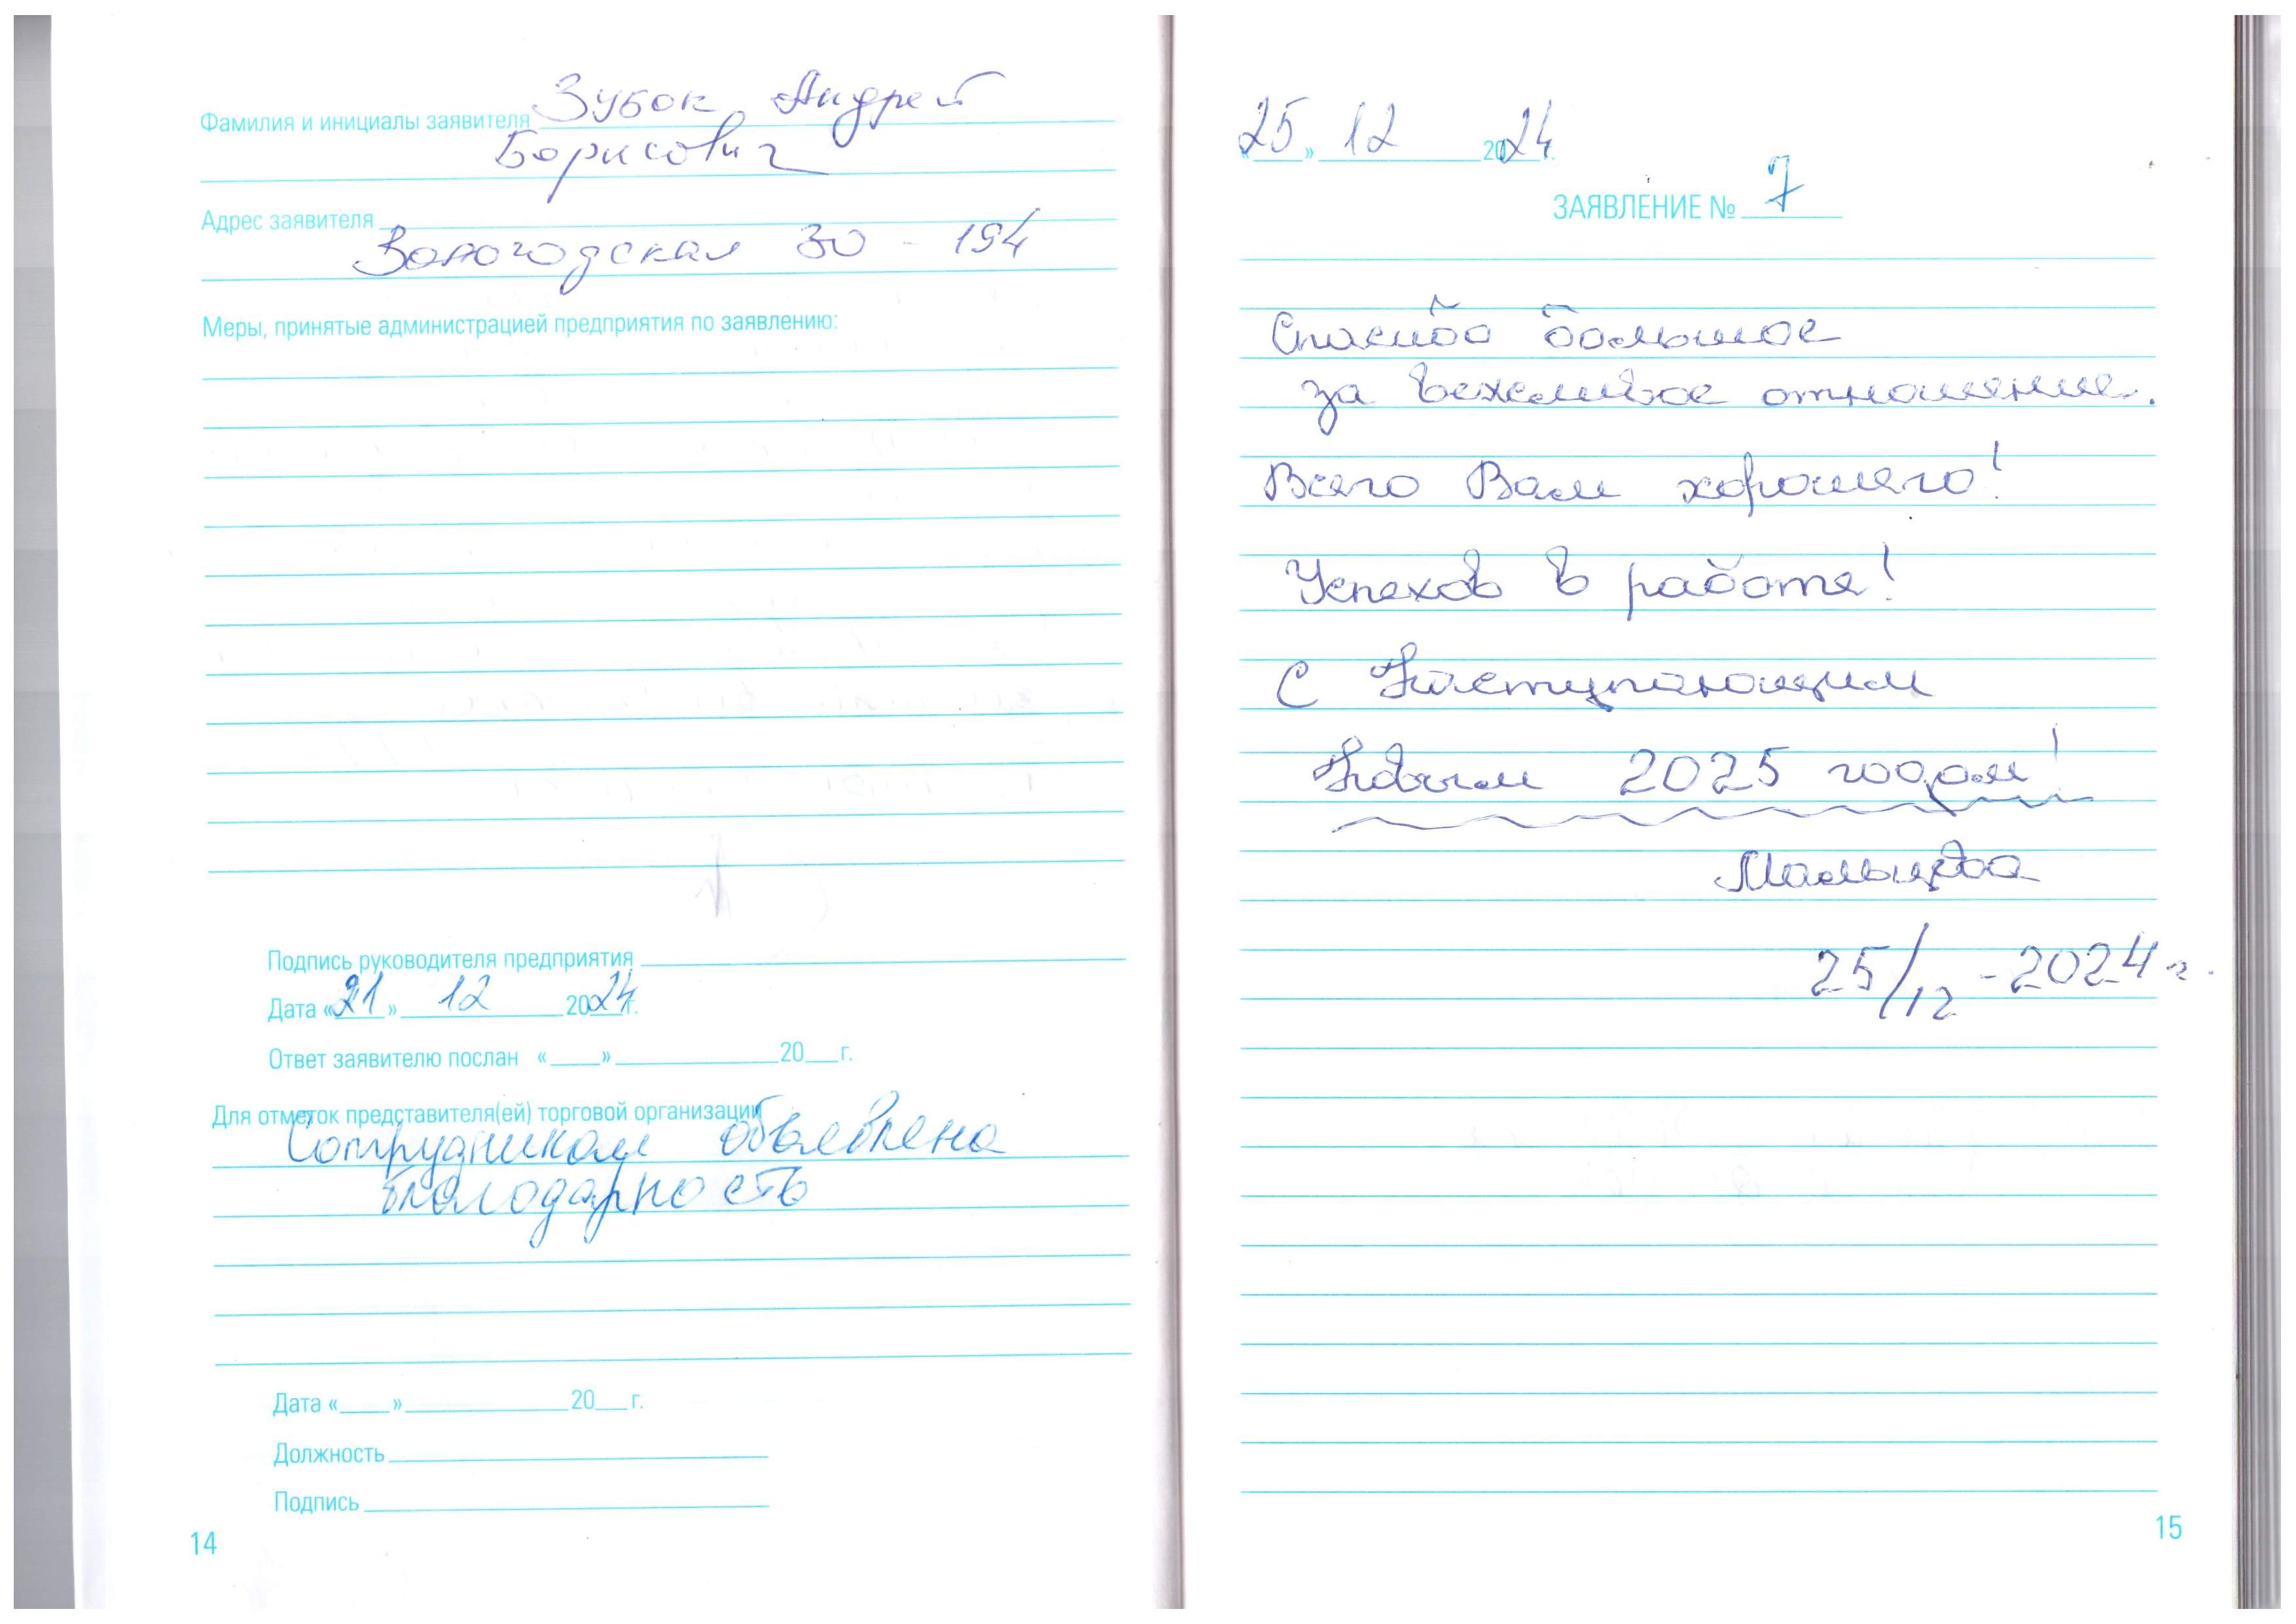 Фамилия и инициалы заявителя Зубок Андрей
Борисович
Адрес заявителя
Вологодская 30 - 194
Меры, принятые администрацией предприятия по заявлению:
Подпись руководителя предприятия
Дата «21» 12 2024г.
Ответ заявителю послан «____» ____________ 20___г.
Для отметок представителя(ей) торговой организации
Сотрудникам объявлена
благодарность
Дата «____» ____________ 20___ г.
Должность
Подпись
14
«25» 12 2024г.
ЗАЯВЛЕНИЕ № 7
Спасибо большое
за вежливое отношение.
Всего Вам хорошего!
Успехов в работе!
С Наступающим
Новым 2025 годом!
Мальцева
25/12 - 2024 г.
15